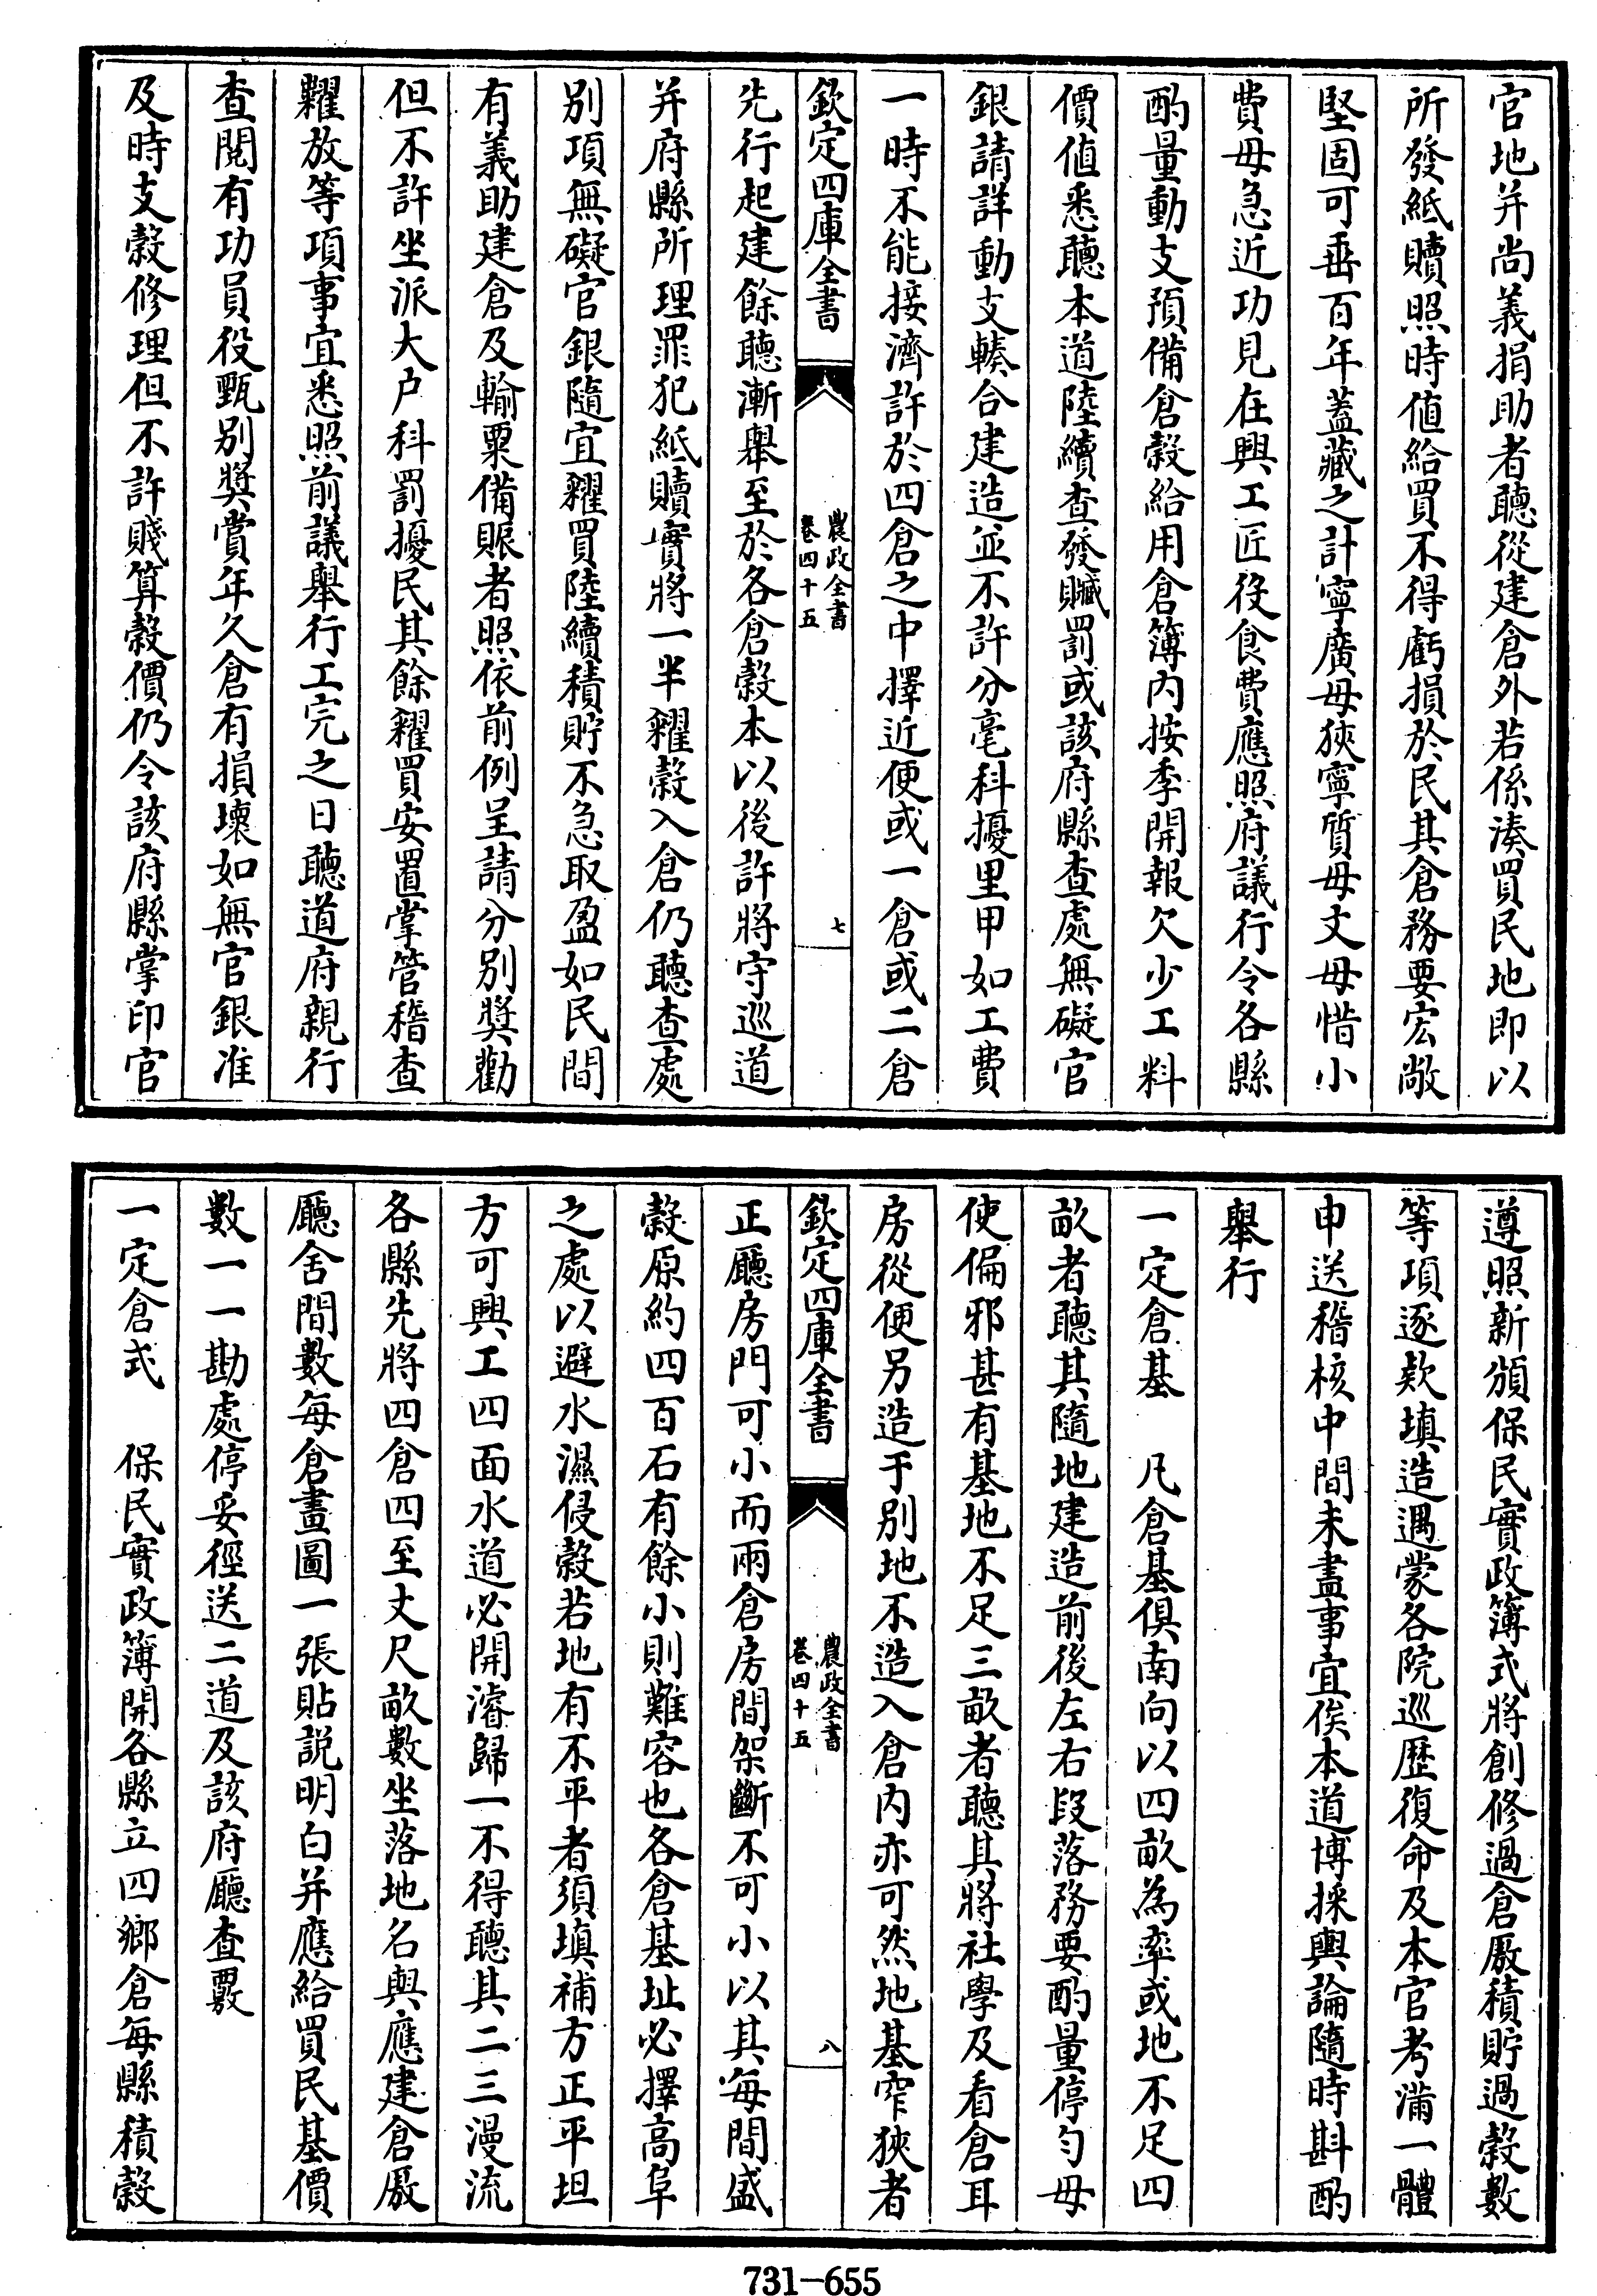 官地并尚義捐助者聽從建倉外若係湊買民地即以
所發紙贖照時値給買不得虧損於民其倉務要宏敞
堅固可垂百年蓋藏之計寧廣毋狹寧質毋文毋惜小
費毋急近功見在興工匠役食費應照府議行令各縣
酌量動支預備倉穀給用倉簿內按季開報欠少工料
價値悉聽本道陸續查發贓罰或該府縣查處無礙官
銀請詳動支輳合建造並不許分毫科擾里甲如工費
一時不能接濟許於四倉之中擇近便或一倉或二倉
欽定四庫全書
農政全書
卷四十五
七
先行起建餘聽漸舉至於各倉穀本以後許將守巡道
并府縣所理罪犯紙贖實將一半糴穀入倉仍聽查處
別項無礙官銀隨宜糴買陸續積貯不急取盈如民間
有義助建倉及輸粟備賑者照依前例呈請分別獎勸
但不許坐派大户科罰擾民其餘糴買安置掌管稽查
糶放等項事宜悉照前議舉行工完之日聽道府親行
查閱有功員役甄別獎賞年久倉有損壞如無官銀准
及時支穀修理但不許賤算穀價仍令該府縣掌印官
遵照新頒保民實政簿式將創修過倉厫積貯過穀數
等項逐款填造遇蒙各院巡歷復命及本官考滿一體
申送稽核中間未盡事宜俟本道博採輿論隨時斟酌
舉行
一定倉基　凡倉基俱南向以四畝為率或地不足四
畝者聽其隨地建造前後左右段落務要酌量停勻毋
使偏邪甚有基地不足三畝者聽其將社學及看倉耳
房從便另造于別地不造入倉內亦可然地基窄狹者
欽定四庫全書
農政全書
卷四十五
八
正廳房門可小而兩倉房間架斷不可小以其每間盛
穀原約四百石有餘小則難容也各倉基址必擇高阜
之處以避水濕侵穀若地有不平者須填補方正平坦
方可興工四面水道必開濬歸一不得聽其二三漫流
各縣先將四倉四至丈尺畝數坐落地名與應建倉厫
廳舍間數每倉畫圖一張貼説明白并應給買民基價
數一一勘處停妥徑送二道及該府廳查覈
一定倉式　保民實政簿開各縣立四鄉倉每縣積穀
731-655